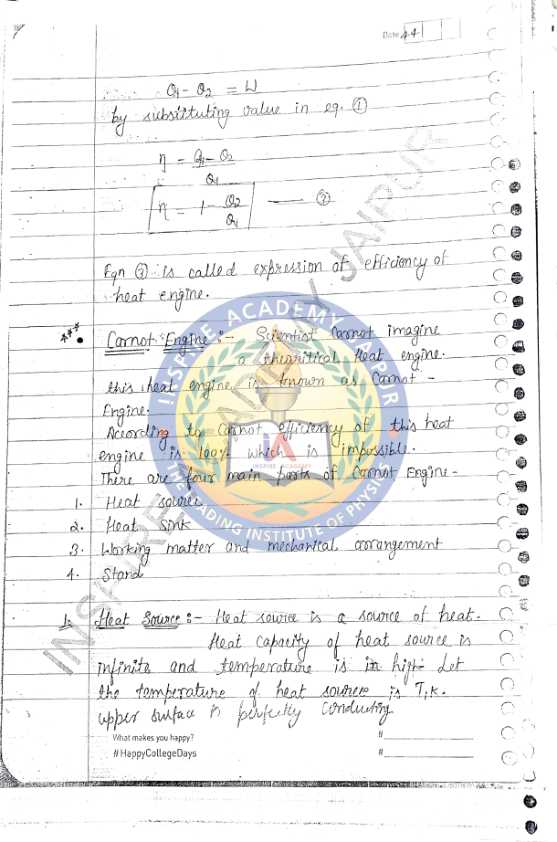 Date 44
Q1 - Q2 = W
by substituting value in eq. ①
η = Q1 - Q2
Q1
η = 1 - Q2 —— ③
Q1
Eqn ③ is called expression of efficiency of
heat engine.
Carnot Engine :- Scientist Carnot imagine
a theoritical Heat engine.
this heat engine is known as Carnot -
Engine.
According to Carnot efficiency of this heat
engine is 100% which is impossible.
There are four main parts of Carnot Engine -
1. Heat source
2. Heat Sink
3. Working matter and mechanical arrangement
4. Stand
1. Heat Source :- Heat source is a source of heat.
Heat capacity of heat source is
infinite and temperature is in high- Let
the temperature of heat source is T1K.
upper surface is perfectly conducting
What makes you happy?
#HappyCollegeDays
#
#
INSPIRE ACADEMY JAIPUR
INSPIRE ACADEMY JAIPUR
iA
INSPIRE ACADEMY
THE LEADING INSTITUTE OF PHYSICS